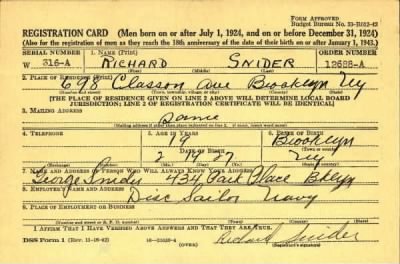 FORM APPROVED
Budget Bureau No. 33-R012-42
REGISTRATION CARD (Men born on or after July 1, 1924, and on or before December 31, 1924)
(Also for the registration of men as they reach the 18th anniversary of the date of their birth on or after January 1, 1943.)
SERIAL NUMBER
1. NAME (Print)
ORDER NUMBER
W 316-A
RICHARD SNIDER
12688-A
(First) (Middle) (Last)
2. PLACE OF RESIDENCE (Print)
698 Classon Ave Brooklyn Ny
[THE PLACE OF RESIDENCE GIVEN ON LINE 2 ABOVE WILL DETERMINE LOCAL BOARD
JURISDICTION; LINE 2 OF REGISTRATION CERTIFICATE WILL BE IDENTICAL]
3. MAILING ADDRESS
Same
[Mailing address if other than place indicated on line 2. If same, insert word same]
4. TELEPHONE
5. AGE IN YEARS
6. PLACE OF BIRTH
Brooklyn
DATE OF BIRTH
Ny
7. NAME AND ADDRESS OF PERSON WHO WILL ALWAYS KNOW YOUR ADDRESS
George Snider 434 Park Place Bklyn
8. EMPLOYER'S NAME AND ADDRESS
Disc Sailor Navy
9. PLACE OF EMPLOYMENT OR BUSINESS
(Number and street or R. F. D. number) (Town) (County) (State)
I AFFIRM THAT I HAVE VERIFIED ABOVE ANSWERS AND THAT THEY ARE TRUE.
DSS Form 1
Richard Snider